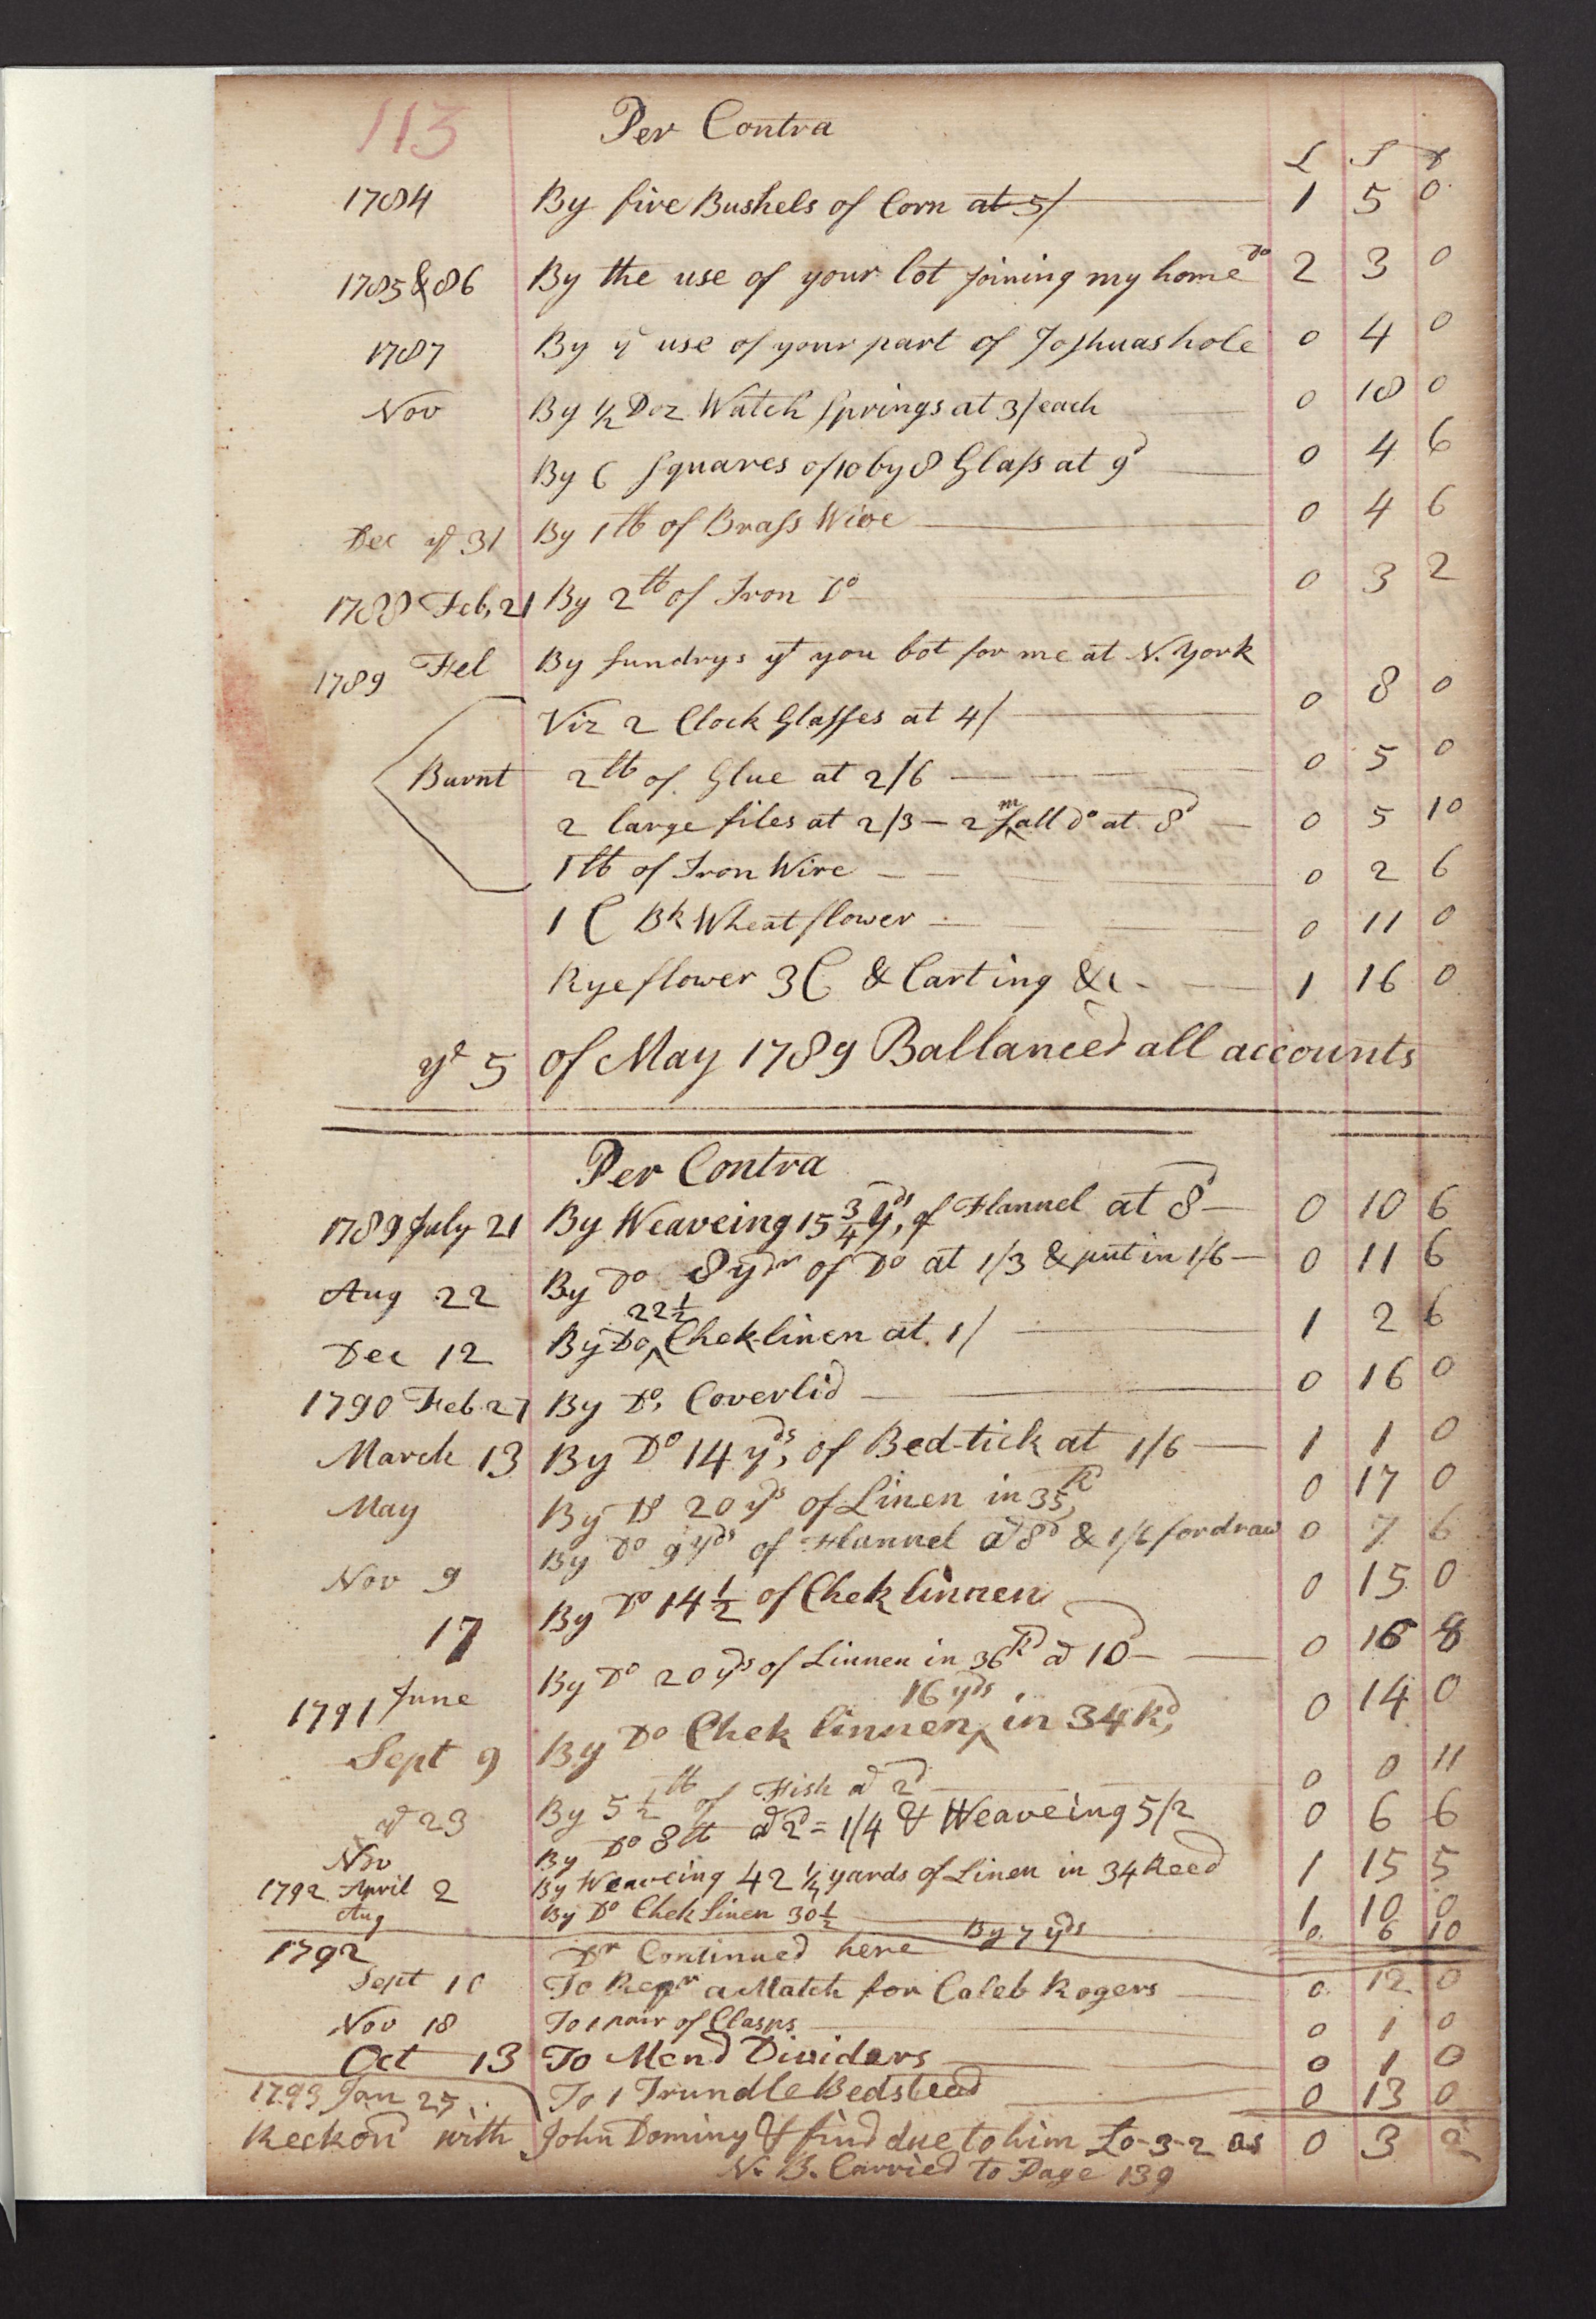 113 Per Contra
£ S D
1784 By five Bushels of Corn at 5/ 1 5 0
1785 & 86 By the use of your lot joining my home do 2 3 0
1787 By ye use of your part of Joshuas hole 0 4 0
Nov By 1/2 Doz Watch Springs at 3/ each 0 18 0
By 6 Squares of 10 by 8 Glass at 9d 0 4 6
Dec ye 31 By 1 lb of Brass Wire 0 4 6
1788 Feb, 21 By 2 lb of Iron Do 0 3 2
1789 Feb By Sundrys yt you bot for me at N. York
Viz 2 Clock Glasses at 4/ 0 8 0
Burnt 2 lb of Glue at 2/6 0 5 0
2 large files at 2/3 - 2 Small do at 8d 0 5 10
1 lb of Iron Wire 0 2 6
1 C Bk Wheat flower 0 11 0
Rye flower 3 C & Carting &c 1 16 0
ye 5 of May 1789 Ballanced all accounts
Per Contra
1789 July 21 By Weaveing 15 3/4 yds, of Flannel at 8d 0 10 6
Aug 22 By Do 8 yds of Do at 1/3 & put in 1/6 0 11 6
Dec 12 By Do 22 1/2 Chek linen at 1/ 1 2 6
1790 Feb. 27 By Do, Coverlid 0 16 0
March 13 By Do 14 yds, of Bed-tick at 1/6 1 1 0
May By Do 20 yds of Linen in 35 Rd 0 17 0
Nov 9 By Do 9 yds of Flannel at 8d & 1/6 for draw 0 7 6
17 By Do 14 1/2 of Chek linnen 0 15 0
1791 June By Do 20 yds of Linnen in 36 Rd at 10d 0 16 8
Sept 9 By Do Chek linnen 16 yds in 34 Rd, 0 14 0
ye 23 By 5 1/2 lb of Fish at 2d 0 0 11
Nov By Do 8 lb at 2d = 1/4 & Weaveing 5/2 0 6 6
1792 April 2 By Weaveing 42 1/2 yards of Linen in 34 Reed 1 15 5
Aug By Do Chek Linen 30 1/2 1 10 0
By 7 yds 0 6 10
1792 Dr Continued here
Sept 10 To Repr a Watch for Caleb Rogers 0 12 0
Nov 18 To 1 pair of Clasps 0 1 0
Oct 13 To Mend Dividers 0 1 0
1793 Jan 25 To 1 Trundle Bedstead 0 13 0
Reckond with John Dominy & find due to him £0-3-2 as 0 3 2
N. B. Carried to Page 139